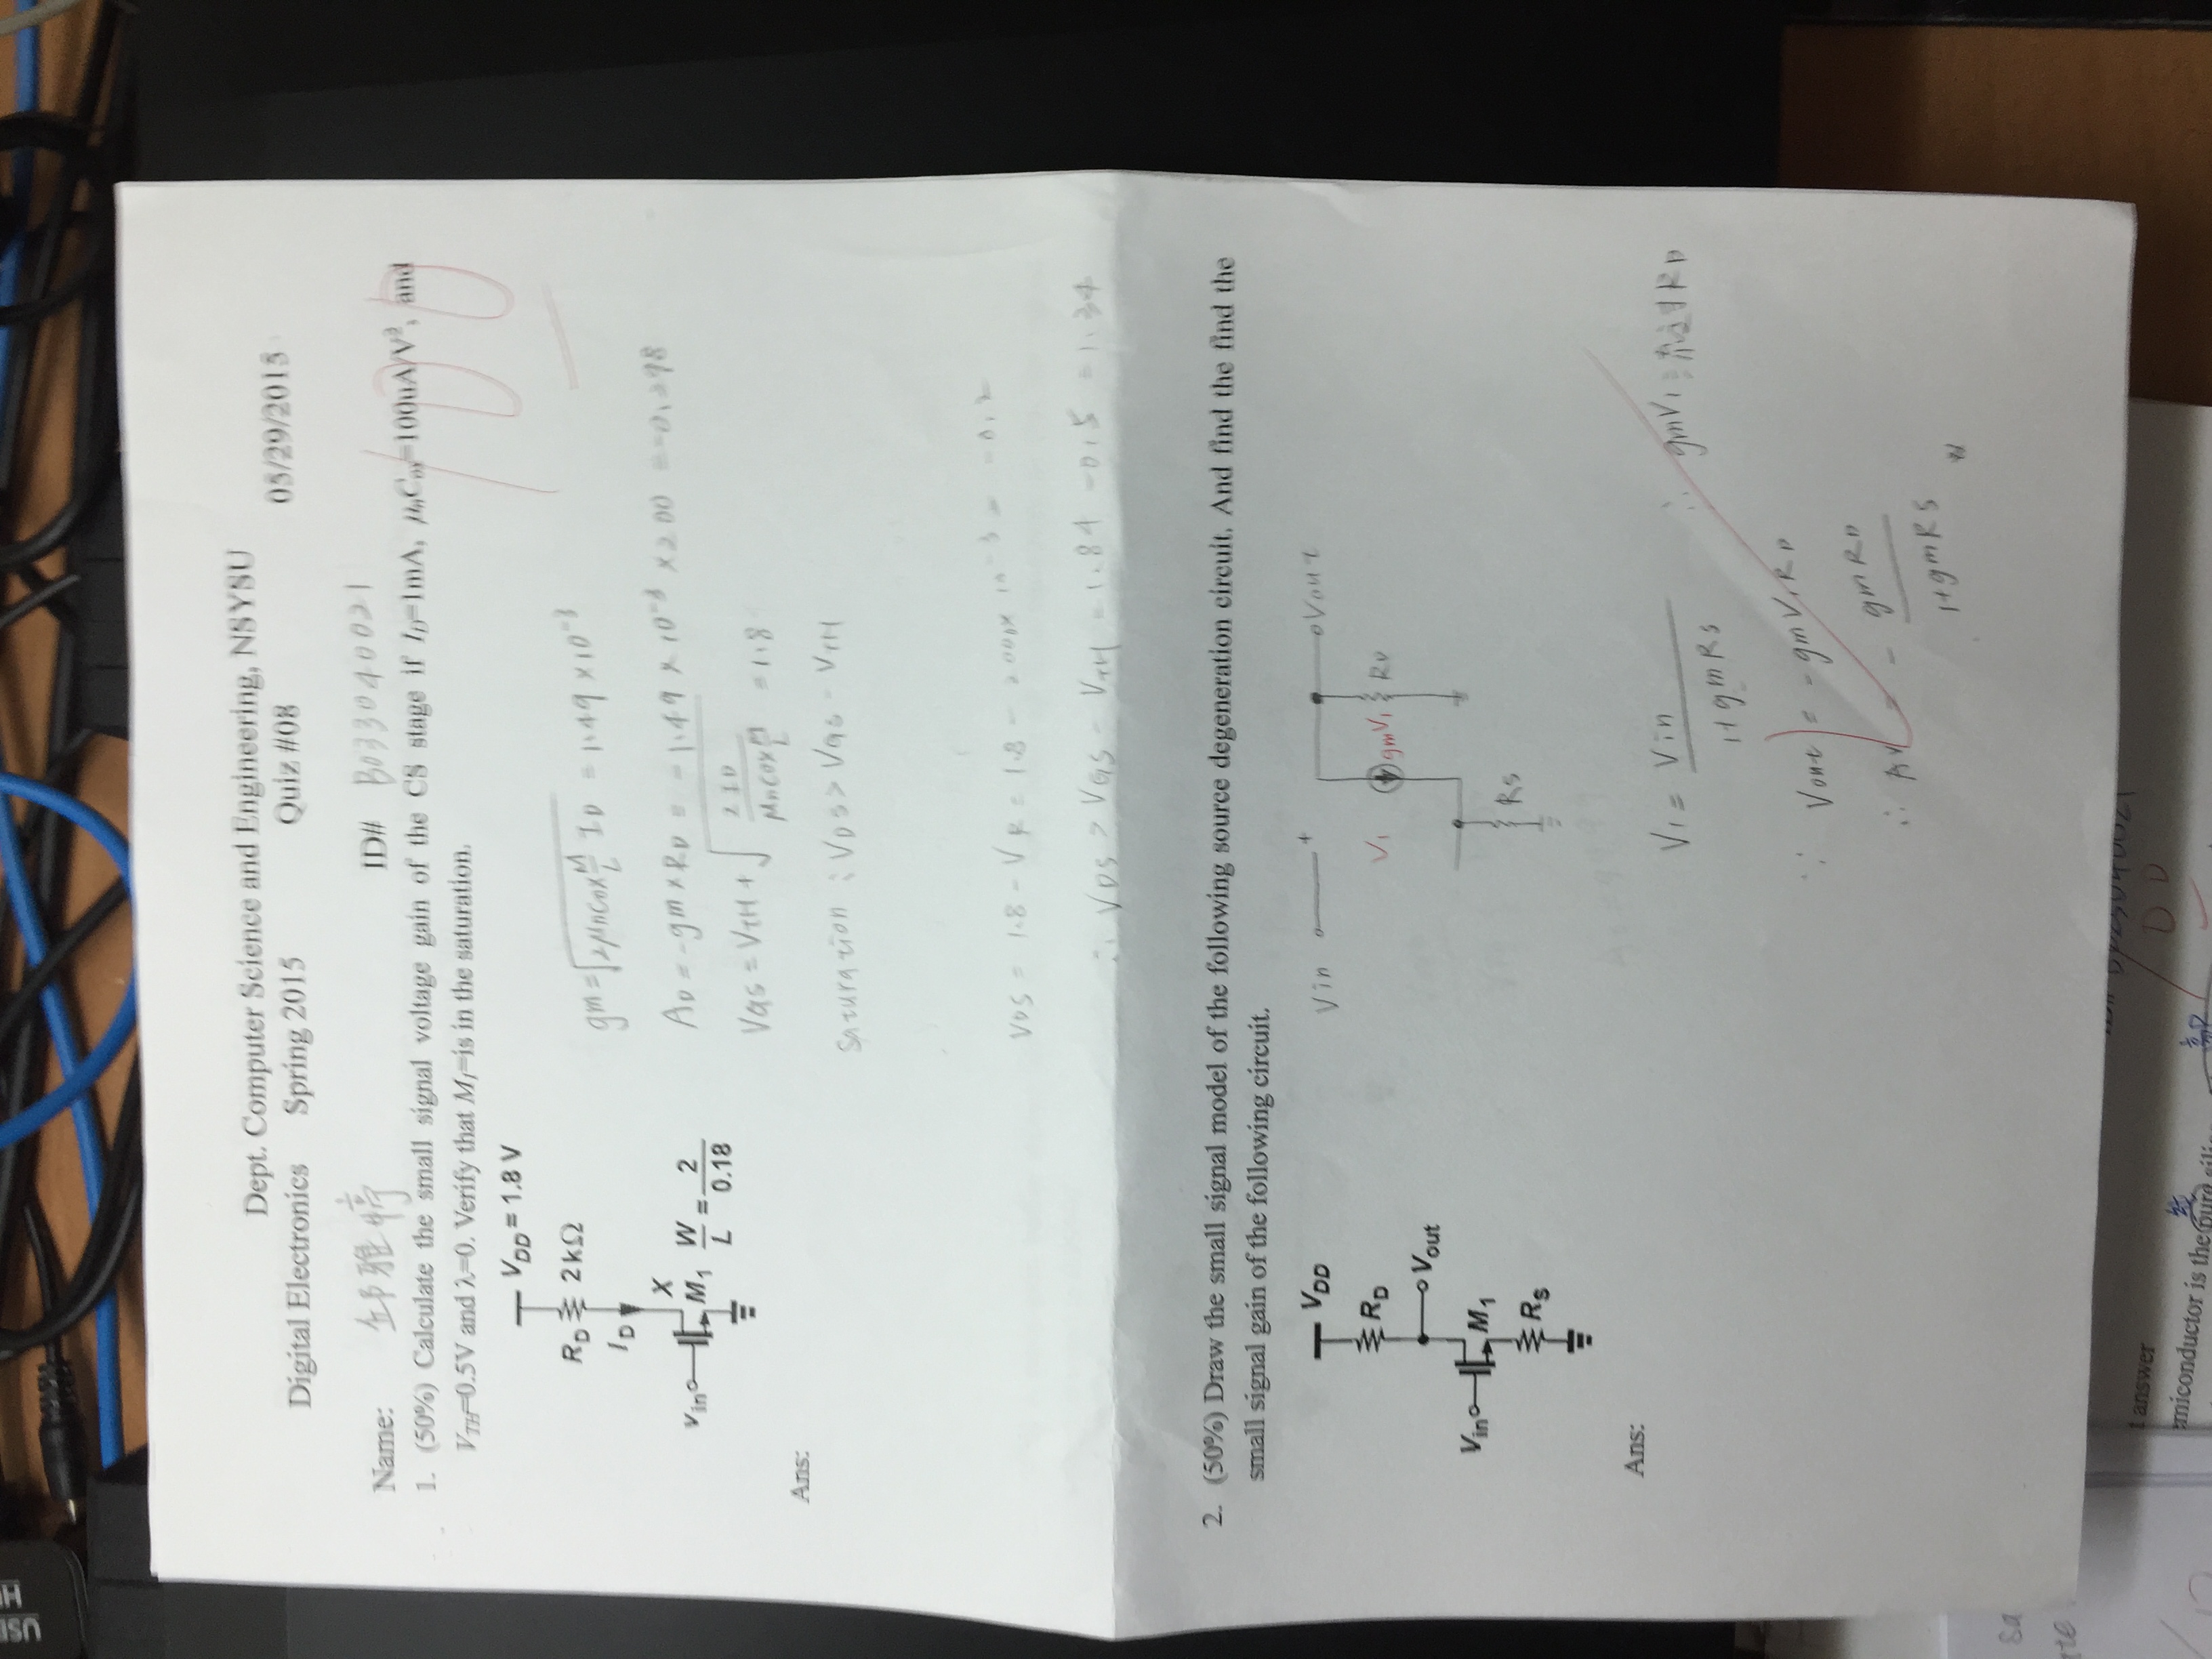 USB
Dept. Computer Science and Engineering, NSYSU
Digital Electronics Spring 2015 Quiz #08 05/29/2015
Name: 邱雅婷 ID# B033040021
100
1. (50%) Calculate the small signal voltage gain of the CS stage if I_D=1mA, μ_nC_ox=100uA/V², and
V_TH=0.5V and λ=0. Verify that M_1=is in the saturation.
V_DD = 1.8 V
R_D 2 kΩ
I_D
X
V_in M_1 W/L = 2/0.18
gm = √(2μnCox M/L ID) = 1.49 × 10⁻³
AD = -gm × RD = -1.49 × 10⁻³ × 200 = -0.298
VGS = VTH + √(2ID / μnCox M/L) = 1.8
Ans:
Saturation : VDS > VGS - VTH
VDS = 1.8 - VR = 1.8 - 2000 × 10⁻³ = -0.2
∴ VDS > VGS - VTH = 1.84 - 0.5 = 1.34
2. (50%) Draw the small signal model of the following source degeneration circuit. And find the find the
small signal gain of the following circuit.
V_DD
R_D
V_out
V_in M_1
R_S
Vin + Vout
V1 gmV1 RD
RS
Ans:
V1 = Vin / 1+gmRS ∴ gmV1 RD
∵ Vout = -gmV1RD
∴ AV = - gmRD / 1+gmRS
sa
te
answer
emiconductor is the pure